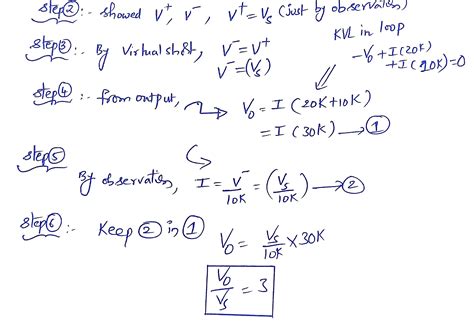 step②:- showed V⁺, V⁻, V⁺=Vs (just by observation)
step③:- By virtual short, V⁻=V⁺
V⁻=(Vs)
KVL in loop
-Vo+I(20K)
+I(10K)=0
step④:- from output, Vo=I(20K+10K)
=I(30K)→①
step⑤
By observation, I=V⁻/10K=(Vs/10K)→②
step⑥:- Keep ② in ① Vo=Vs/10K×30K
Vo/Vs=3